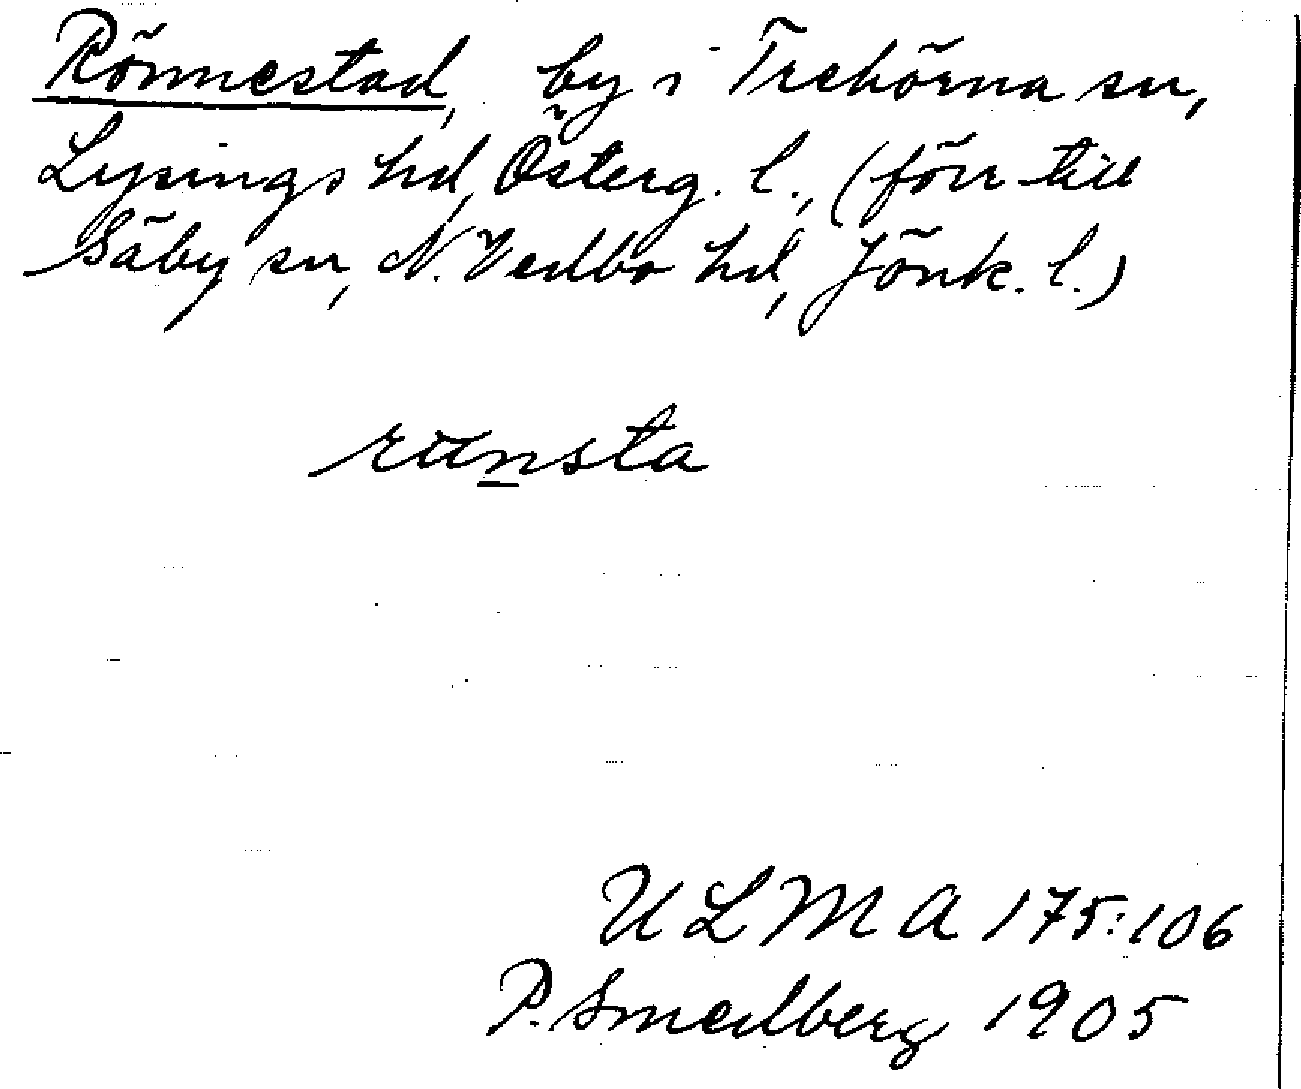 Rönnestad, by i Trehörna sn,
Lysings hd, Österg. l., (förr till
Säby sn, N. Vedbo hd, Jönk. l.)
ULMA 175:106
P. Smedberg 1905